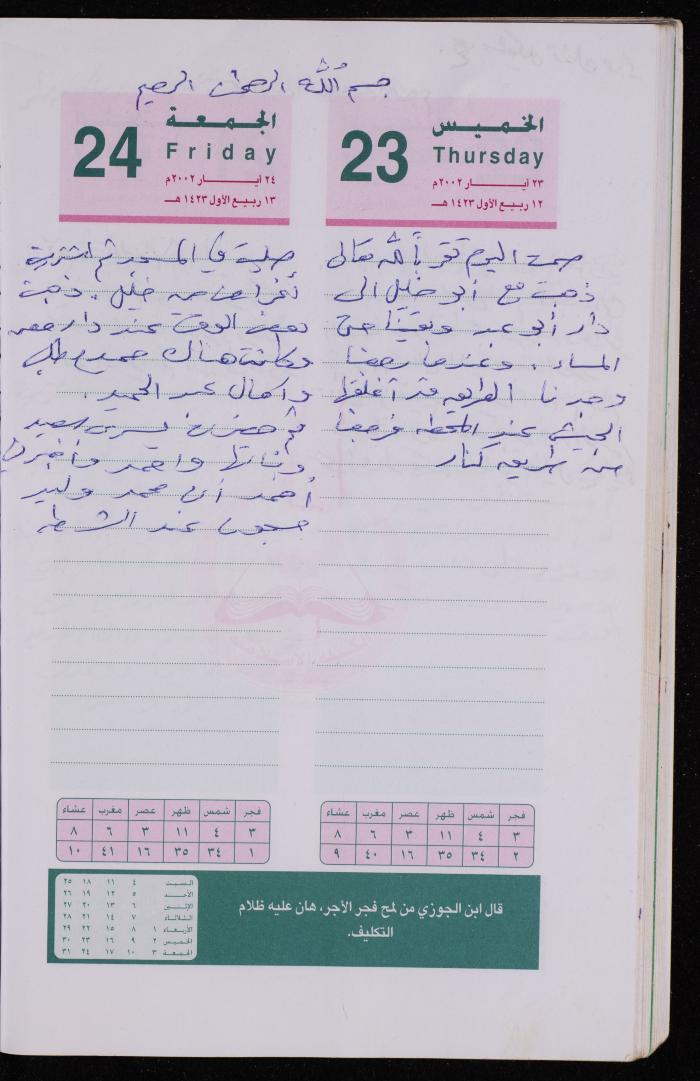 بسم الله الرحمن الرحيم
الخميس
23
Thursday
٢٣ أيـــــار ٢٠٠٢م
١٢ ربيع الأول ١٤٢٣ هـ
صمت اليوم تقرباً لله تعالى
ذهبت مع أبو خليل إلى
دار أبو عبد وبقينا حتى
المساء . وعندما رجعنا
وجدنا الطريق قد أغلقها
الجيش عند المحطة فرجعنا
من طريق كنار
الجمعة
24
Friday
٢٤ أيـــــار ٢٠٠٢م
١٣ ربيع الأول ١٤٢٣ هـ
صليت في المسجد ثم اشتريت
أغراض من خليل . ذهبت
بعض الوقت عند دار
وكانت هناك
وآمال عبد الحميد .
ثم حضرت يسرى سعيد
وبناتها وأحمد وأخبرني
أحمد أن محمد وليد
مسجون عند الشرطة
فجر شمس ظهر عصر مغرب عشاء
٣ ٤ ١١ ٣ ٦ ٨
٢ ٣٤ ٣٥ ١٦ ٤٠ ٩
فجر شمس ظهر عصر مغرب عشاء
٣ ٤ ١١ ٣ ٦ ٨
١ ٣٤ ٣٥ ١٦ ٤١ ١٠
قال ابن الجوزي من لمح فجر الأجر، هان عليه ظلام
التكليف.
السبت ٤ ١١ ١٨ ٢٥
الأحد ٥ ١٢ ١٩ ٢٦
الإثنين ٦ ١٣ ٢٠ ٢٧
الثلاثاء ٧ ١٤ ٢١ ٢٨
الأربعاء ١ ٨ ١٥ ٢٢ ٢٩
الخميس ٢ ٩ ١٦ ٢٣ ٣٠
الجمعة ٣ ١٠ ١٧ ٢٤ ٣١